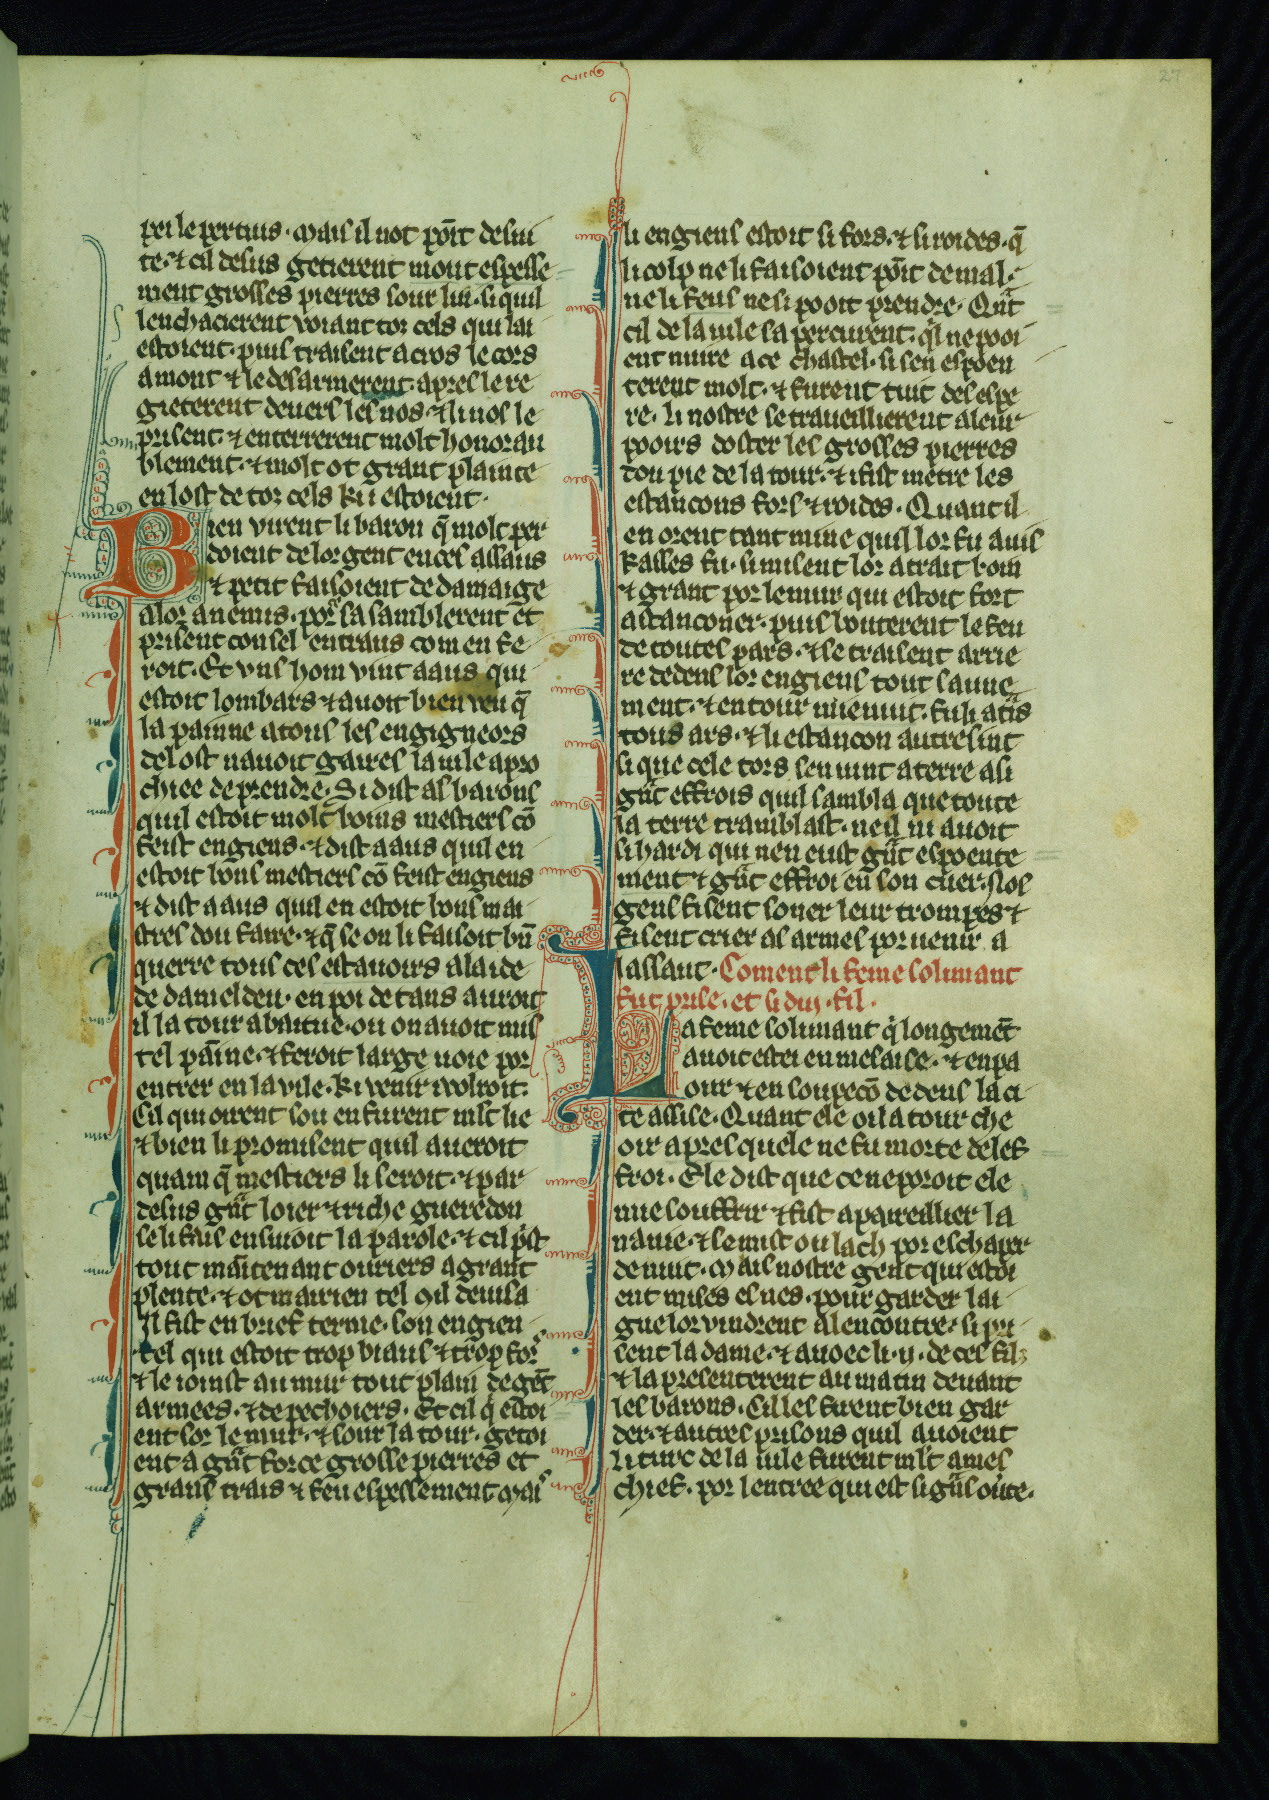 27
pei le pertuis· mais il not põit de sui
te· ⁊ cil desus getierent mout espesse
ment grosses pierres sour lui· si quil
lenchacierent voiant toz cels qui lai
estoient· puis traisent a cros le cors
amont ⁊ le desarmerent· apres le re
gieterent deuers les nos· ⁊ li nos le
prisent· ⁊ enterrerent molt honorau
blement· ⁊ molt ot grant plainte
en lost de toz cels ki i estoient·
Bien virent li baron q̄ molt per
doient de lor gent en ces assaus
⁊ petit faisoient de damaige
a lor anemis· por̄ sa samblerent ēt
prisent consel entraus comen fe
roit· Et vns hom vint a aus qui
estoit lombars ⁊ auoit bien veu q̄
la painne a tous les engigneors
de lost nauoit gaires la uile apro
chiee de prendre· Si dist as barons
quil estoit molt boins mestiers cō
feist engiens· ⁊ dist a aus quil en
estoit bons mestiers cō feist engiens
⁊ dist a aus quil en estoit bons mai
stres dou faire· ⁊ q̄ se on li faisoit bñ
querre tous ces estauoirs a laide
de dameldeu· en poi de tans auroit
il la tour abatue· ou on auoit mis
tel pāine· ⁊ feroit large uoie por
entrer en la vile· ki venir wolroit·
Cil qui oirent sou en furent mlt̄ lie
⁊ bien li promisent quil aueroit
quam q̄ mestiers li seroit· ⁊ par
desus gr̄at loier ⁊ riche gueredon
se li fais ensiuoit la parole· ⁊ cil p̄st
tout māitenant ouriers a grant
plente· ⁊ ot mairien tel q̄il deuisa
Il fist en brief terme· son engien
tel qui estoit trop biaus ⁊ trop fors
⁊ le ioinst au mur tout plain de gēt
armees· ⁊ de pechoiers· Et cil q̄ estoi
ent sor le mur· ⁊ sour la tour· getoi
ent a gr̄at force grosse pierres et
grans trais ⁊ feu espessement mais
li engiens estoit si fors· ⁊ si roides· q̄
li colp ne li faisoient põit de mal·
ne li feus ne si pooit prendre· Qant
cil de la uile sa percurent· q̄l ne pooi
ent nuire a ce chastel· si sen espoen
terent molt· ⁊ furent tuit desespe
re· li nostre se traueillierent a leur
pooirs doster les grosses pierres
dou pie de la tour· ⁊ i fist metre les
estancons fors ⁊ roides· Quant il
en orent tant mine quil lor fu auis
kasses fu· si misent lor atrait boin
⁊ grant por le mur qui estoit fort
a estanconer· puis bouterent le feu
de toutes pars· ⁊ se traisent arrie
re dedens lor engiens tout sauue
ment· ⁊ entour mienuit· fu li atr̄is
tous ars· ⁊ li estancon autresint
si que cele tors sen uint a terre a si
gr̄at effrois quil sambla que toute
la terre tramblast· ne il ni auoit
si hardi qui nen eust gr̄at espoente
ment ⁊ gr̄at effroi en son cuer· Nos
gens fisent soner leur trompes ⁊
fisent crier as armes por uenir a
lassaut· Coment li feme solimant
fut prise· et si dui· fil·
La feme solimant q̄ longemēt
auoit estei en mesaise· ⁊ en pa
our ⁊ en soupecō dedens la ci
te assise· Quant ele oi la tour che
oir apres quele ne fu morte de lef
froi· Ele dist que ce ne poroit ele
mie souffrir ⁊ fist apareillier la
nauie· ⁊ se mist ou lach por eschaper
de nuit· Mais nostre gent qui estoi
ent mises es nes· pour garder lai
gue lor vindrent al encontre· si pri
sent la dame· ⁊ auoec li· ij· de ces filz
⁊ la presenterent au matin deuant
les barons· Cil les firent bien gar
der· ⁊ autres prisons quil auoient
Li turc de la uile furent mlt̄ a mes
chief· por lentree qui est si gr̄as ou̇te·